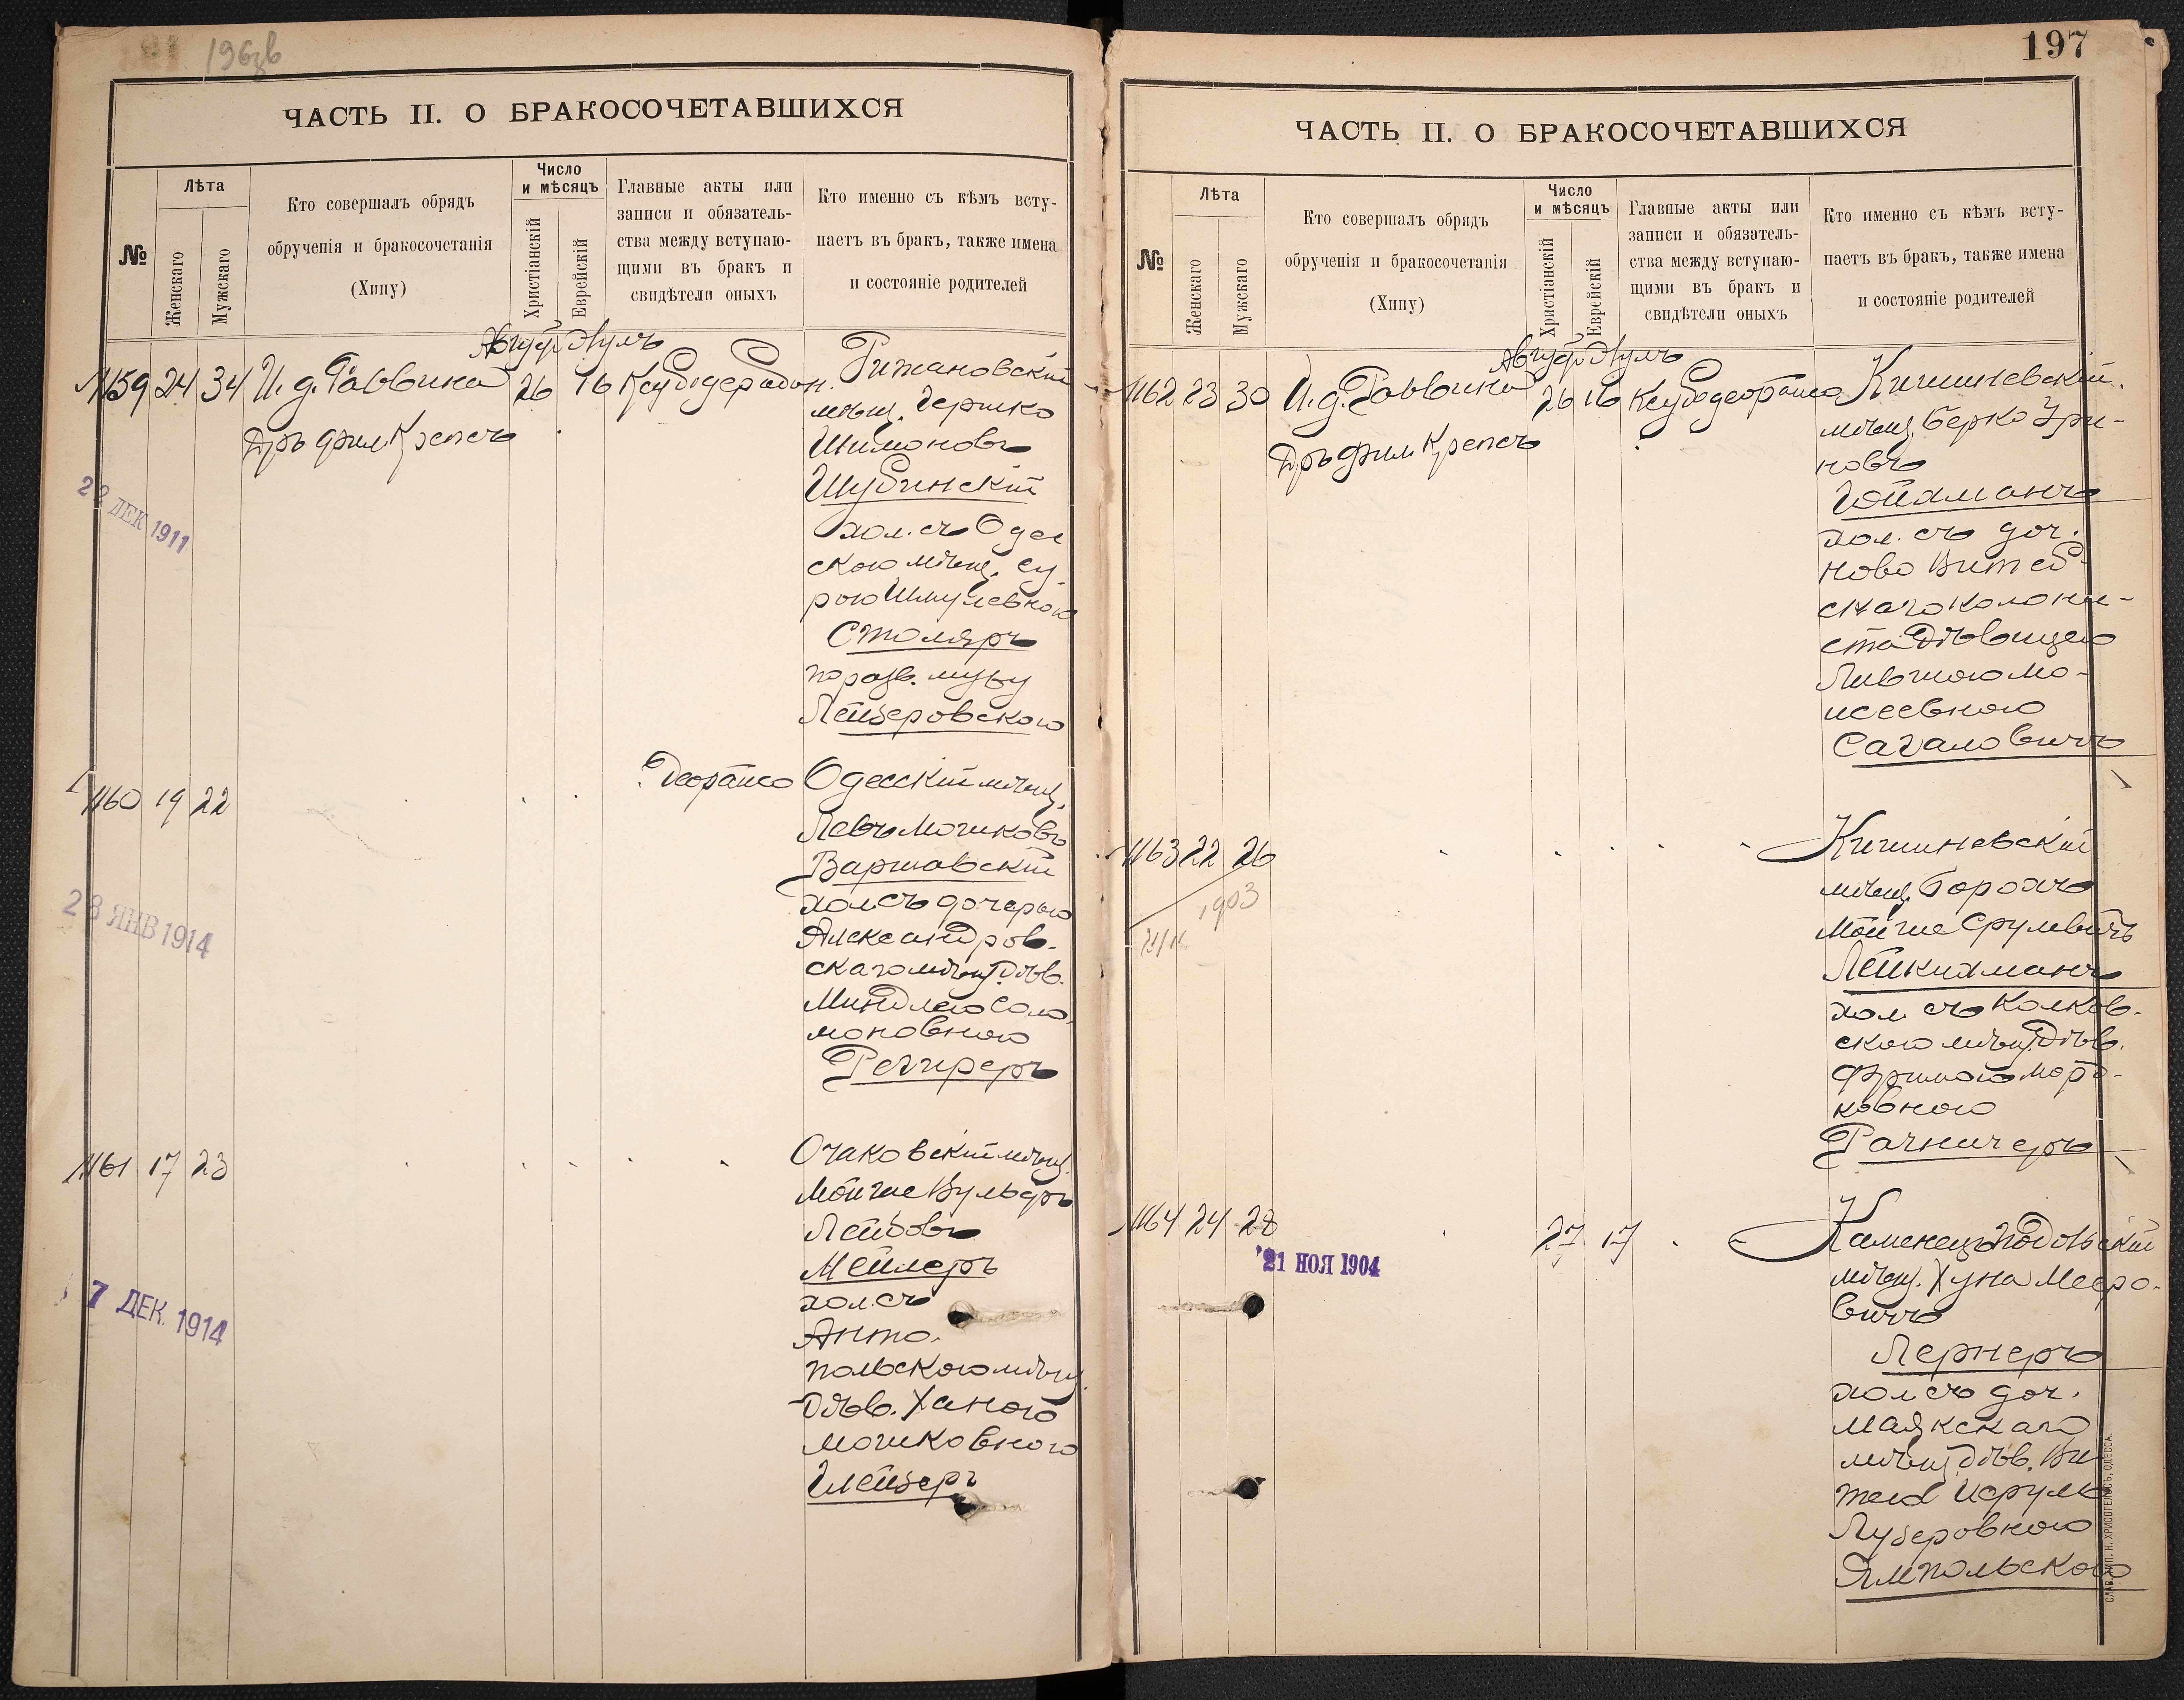 ЧАСТЬ II. О БРАКОСОЧЕТАВШИХСЯ
№
Лѣта
Женскаго
Мужскаго
Кто совершалъ обрядъ
обрученія и бракосочетанія
(Хипу)
Число
и мѣсяцъ
Христіанскій
Еврейскій
Главные акты или
записи и обязатель-
ства между вступаю-
щими въ бракъ и
свидѣтели оныхъ
Кто именно съ кѣмъ всту-
паетъ въ бракъ, также имена
и состояніе родителей
1159 24 34 И. д. Раввина 26 16
Дръ фил Крепсъ
мѣщ. Гершко
Шимоновъ
Шубинскій
хол. съ Одес
скою мѣщ. Су-
рою Шмулевною
Столяръ
по разв. мужу
Лейзеровского
28 ДЕК 1911
1160 19 22
Одесскій мѣщ.
Левъ Мошковъ
Варшавскій
хол. съ дочерью
Александров.
скаго мѣщ. дѣв.
Миндлею Соло
моновною
28 ЯНВ 1914
1161 17 23
Очаковскій мѣщ.
Мойше Вульфъ
Лейбовъ
Мейлеръ
хол. съ
Анто.
польскою мѣщ.
дѣв. Ханою
Мошковною
Глейзеръ
7 ДЕК. 1914
197
ЧАСТЬ II. О БРАКОСОЧЕТАВШИХСЯ
№
Лѣта
Женскаго
Мужскаго
Кто совершалъ обрядъ
обрученія и бракосочетанія
(Хипу)
Число
и мѣсяцъ
Христіанскій
Еврейскій
Главные акты или
записи и обязатель-
ства между вступаю-
щими въ бракъ и
свидѣтели оныхъ
Кто именно съ кѣмъ всту-
паетъ въ бракъ, также имена
и состояніе родителей
1162 23 30 И. д. Раввина 26 16 Кишиневскій
Дръ фил. Крепсъ
мѣщ. Берко Ури-
новъ
Гойхманъ
хол. съ доч.
Ново Витеб-
скаго колони-
ста дѣвицею
Моисеевною
Сагаловичъ
1163 22 26
1903
Кишиневскій
мѣщ. Борохъ
Мойше Срулевичъ
Лейкихманъ
хол. съ Колков-
скою мѣщ. дѣв.
Фримою Морд-
ковною
1164 24 28 27 17
21 НОЯ 1904
Каменецъ Подольскій
мѣщ. Хуна Мееро-
вичъ
Лернеръ
хол. съ доч.
Маякскаго
мѣщ. дѣв.
Лузеровною
Ямпольскою
СЛАВ. ТИП. Н. ХРИСОГЕЛОСЪ, ОДЕССА.